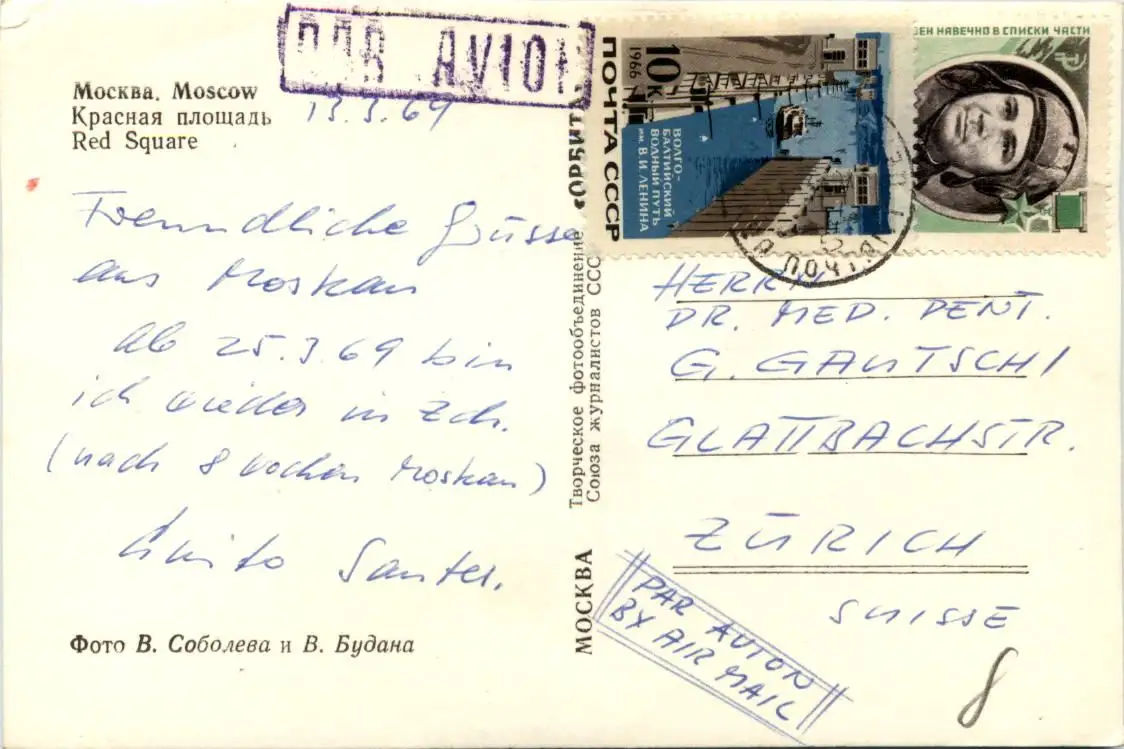 PAR AVION
Москва. Moscow
Красная площадь
Red Square
13.3.69
Freundliche Grüsse
aus Moskau
Ab 25.3.69 bin
ich wieder in Zch.
(nach 8 Wochen Moskau)
Sauter.
Фото В. Соболева и В. Будана
Творческое фотообъединение «ОРБИТА
Союза журналистов ССС
МОСКВА
10к
1966
ПОЧТА СССР
ВОЛГО-
БАЛТИЙСКИЙ
ВОДНЫЙ ПУТЬ
им. В. И. ЛЕНИНА
ЕН НАВЕЧНО В СПИСКИ ЧАСТИ
HERRN
DR. MED. DENT.
G. GAUTSCHI
GLATTBACHSTR.
ZÜRICH
SUISSE
PAR AVION
BY AIR MAIL
8